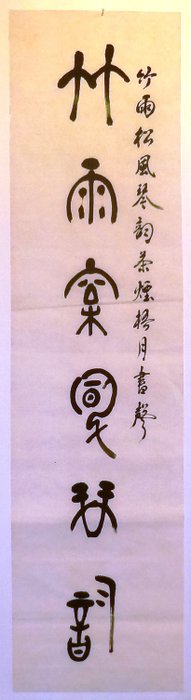 竹雨松風琴韵茶煙梧月書聲
竹雨松風琴韵